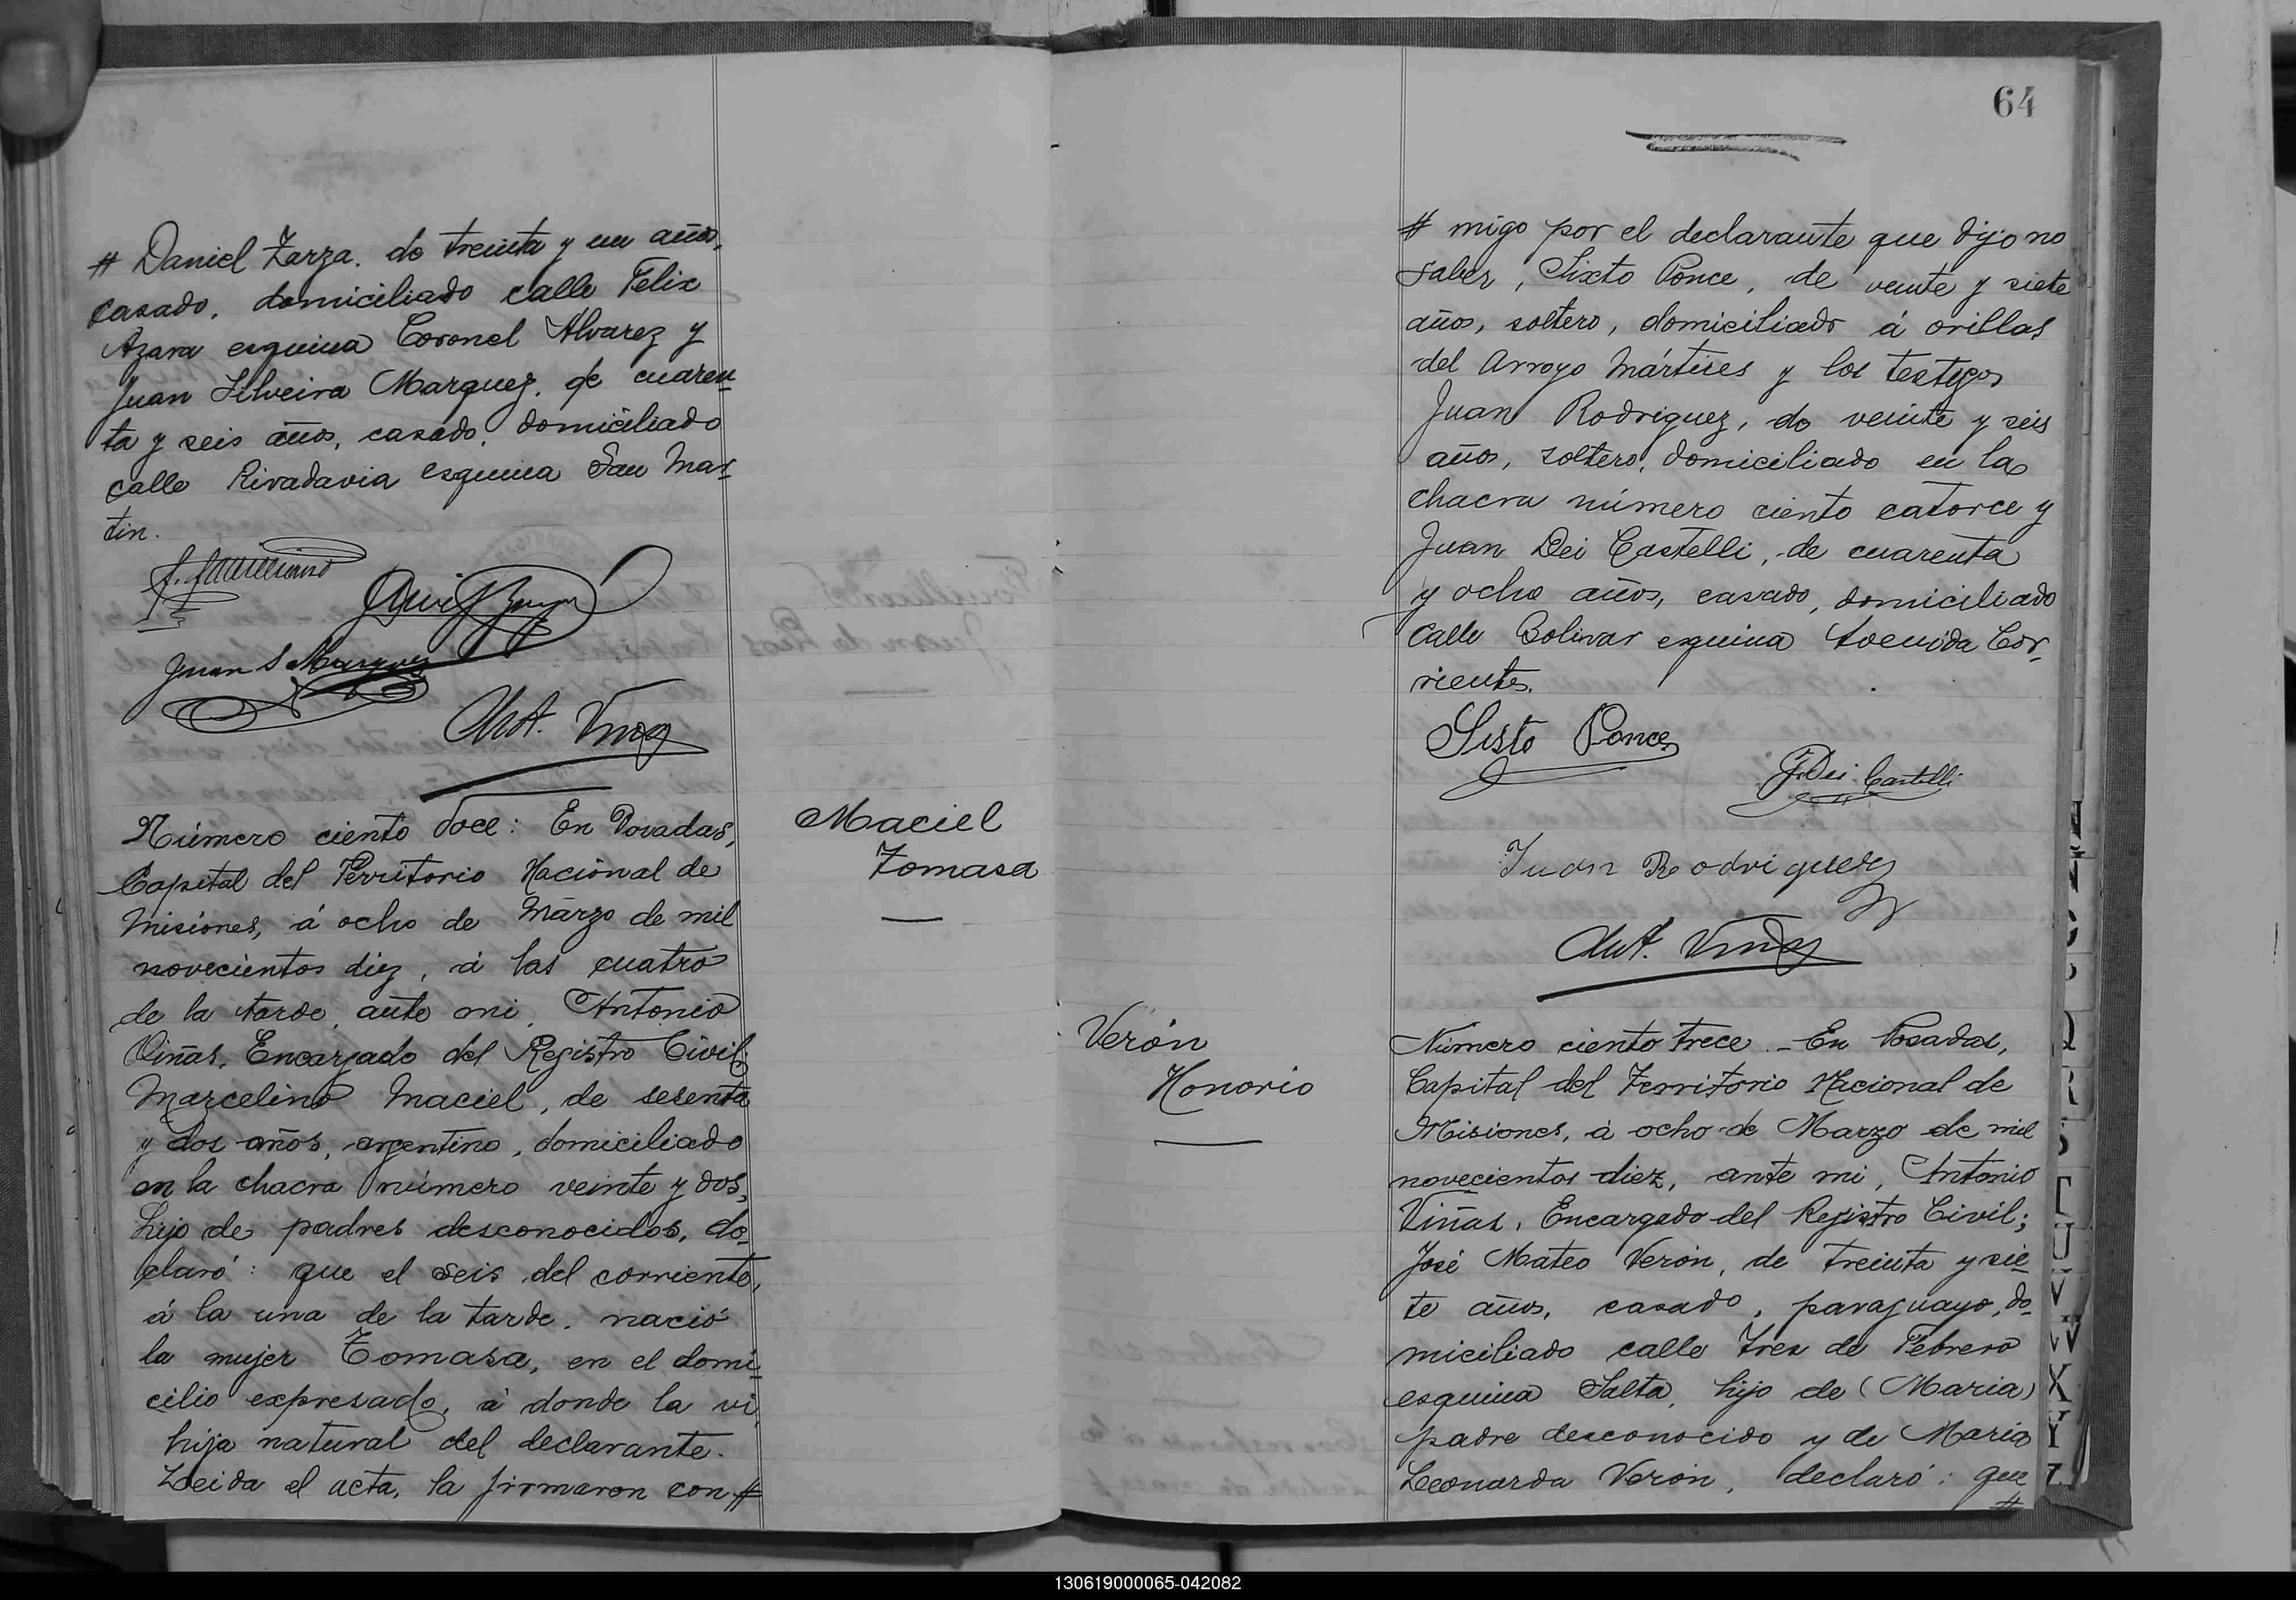 # Daniel Zarza, de treinta y un años,
casado, domiciliado calle Felix
Azara esquina Coronel Alvarez y
Juan Silveira Marquez, de cuaren_
ta y seis años, casado, domiciliado
calle Rivadavia esquina San Mar_
tin.
Juan S Marquez
Ant. Viñas
Número ciento doce: En Posadas,
Capital del Territorio Nacional de
Misiones, á ocho de Marzo de mil
novecientos diez, á las cuatro
de la tarde, ante mi, Antonio
Viñas, Encargado del Registro Civil;
Marcelino Maciel, de sesenta
y dos años, argentino, domiciliado
en la chacra número veinte y dos,
hijo de padres desconocidos, de_
claró: que el seis del corriente,
á la una de la tarde, nació
la mujer Tomasa, en el domi_
cilio expresado, á donde la vi,
hija natural del declarante.
Leida el acta, la firmaron con #
Maciel
Tomasa
64
# migo por el declarante que dijo no
saber, Sixto Ponce, de veinte y siete
años, soltero, domiciliado á orillas
del arroyo Mártires y los testigos
Juan Rodriguez, de veinte y seis
años, soltero, domiciliado en la
chacra número ciento catorce y
Juan Dei Castelli, de cuarenta
y ocho años, casado, domiciliado
calle Bolivar esquina Avenida Cor_
rientes.
Sisto Ponce
J. Dei Castelli
Juan Rodriguez
Ant. Viñas
Verón
Honorio
Número ciento trece._ En Posadas,
Capital del Territorio Nacional de
Misiones, á ocho de Marzo de mil
novecientos diez, ante mi, Antonio
Viñas, Encargado del Registro Civil;
José Mateo Verón, de treinta y sie_
te años, casado, paraguayo, do_
miciliado calle Tres de Febrero
esquina Salta, hijo de (Maria)
padre desconocido y de Maria
Leonarda Verón, declaró: que
#
130619000065-042082